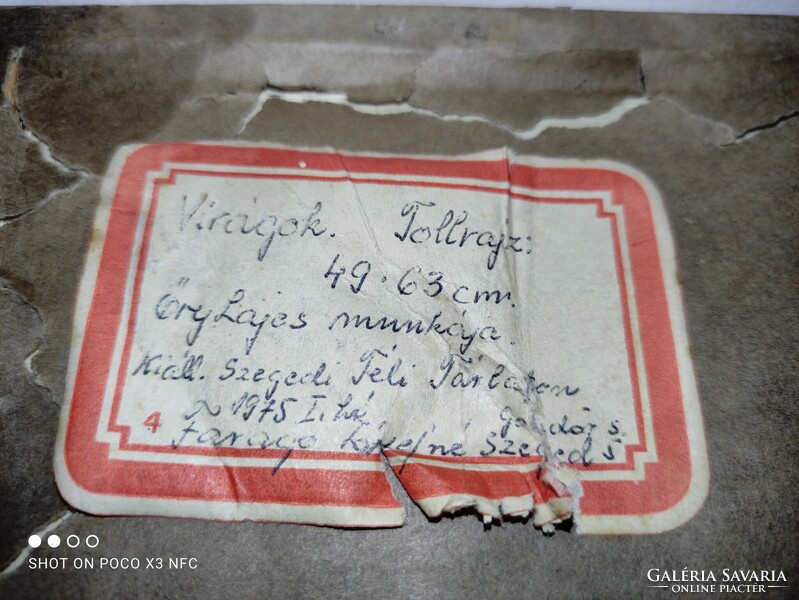 Virágok. Tollrajz:
49·63 cm.
Őry Lajos munkája.
Kiáll. Szegedi Téli Tárlaton
1975 I. hó
4 Faragó né Szeged
SHOT ON POCO X3 NFC
GALÉRIA SAVARIA
ONLINE PIACTÉR